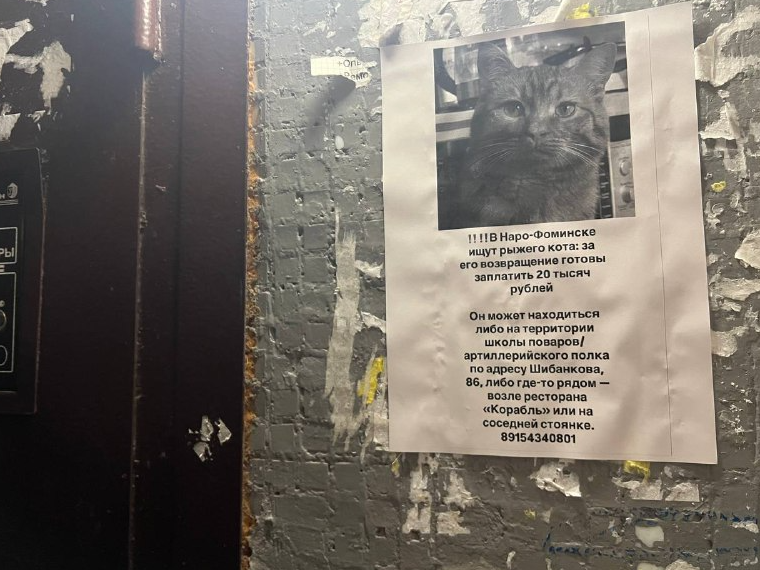 !!!!В Наро-Фоминске
ищут рыжего кота: за
его возвращение готовы
заплатить 20 тысяч
рублей
Он может находиться
либо на территории
школы поваров/
артиллерийского полка
по адресу Шибанкова,
86, либо где-то рядом —
возле ресторана
«Корабль» или на
соседней стоянке.
89154340801